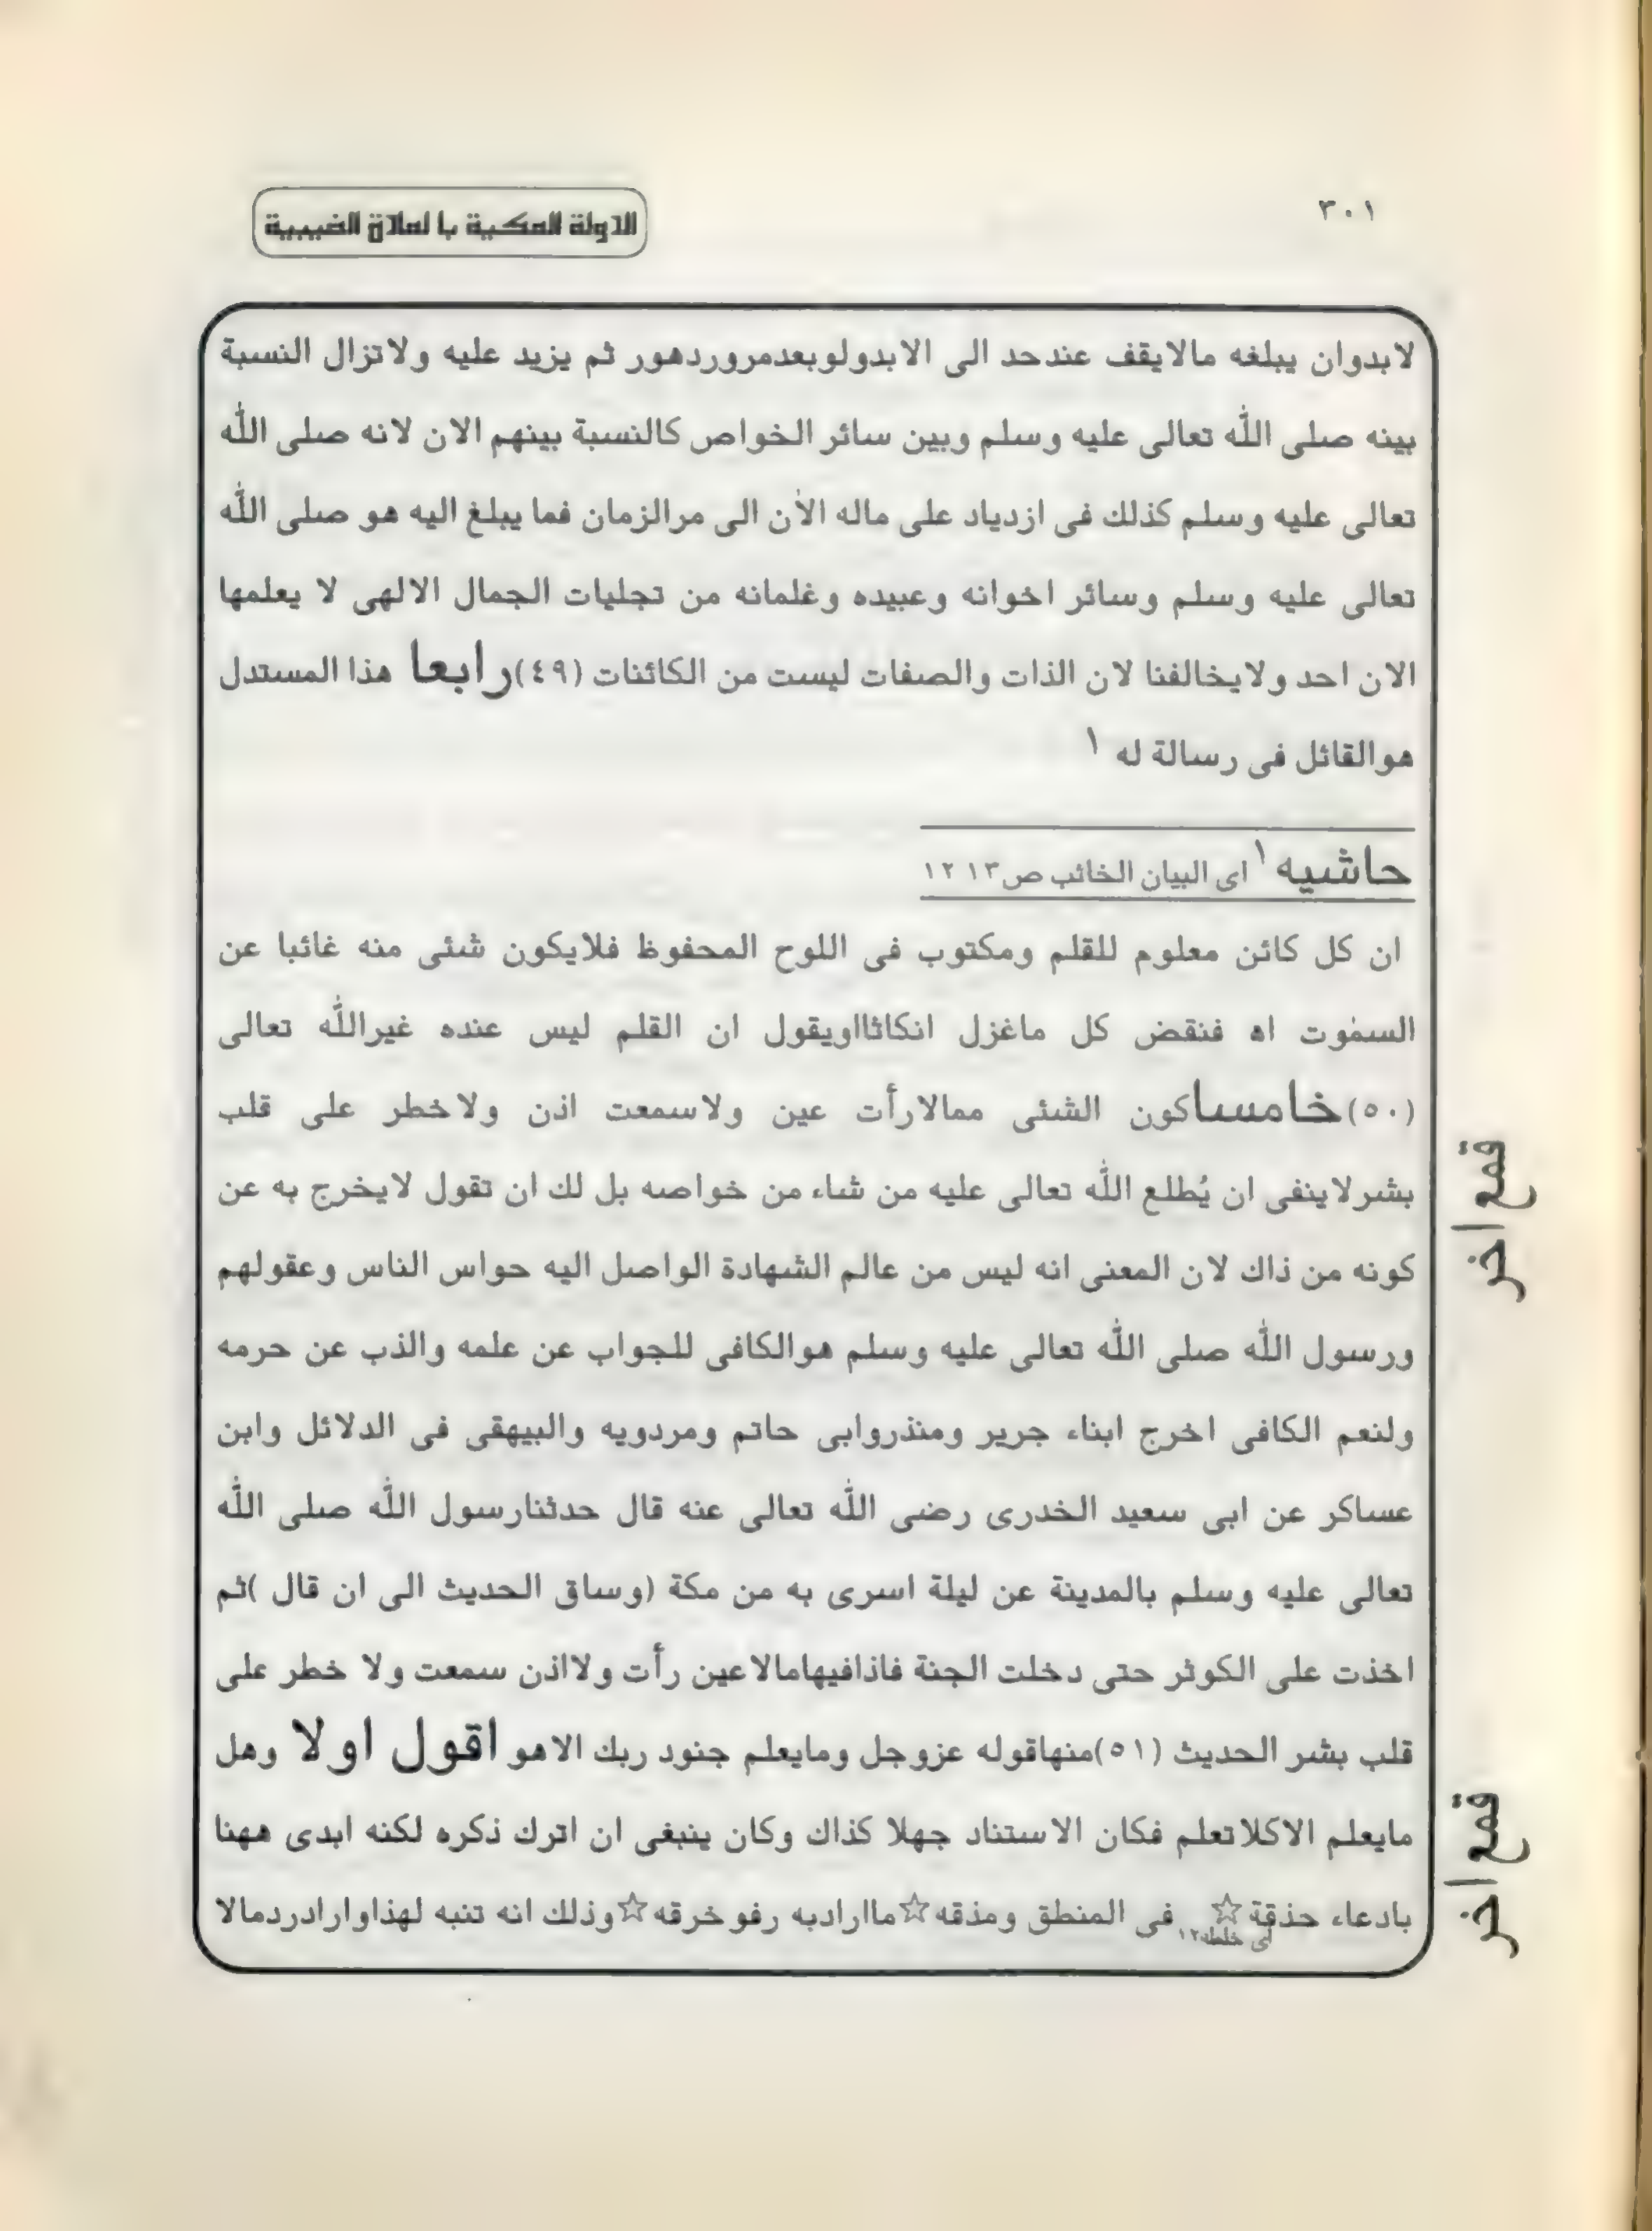 ٣٠١
الدولة المكية با لمادة الغيبية
لابدوان يبلغه مالايقف عندحد الى الابدولوبعدمروردهور ثم يزيد عليه ولاتزال النسبة
بينه صلى اللّٰه تعالى عليه وسلم وبين سائر الخواص كالنسبة بينهم الان لانه صلى اللّٰه
تعالى عليه وسلم كذلك فى ازدياد على ماله الأن الى مرالزمان فما يبلغ اليه هو صلى اللّٰه
تعالى عليه وسلم وسائر اخوانه وعبيده وغلمانه من تجليات الجمال الالهى لا يعلمها
الان احد ولايخالفنا لان الذات والصفات ليست من الكائنات (٤٩)رابعا هذا المستدل
هوالقائل فى رسالة له ١
حاشيه ١ اى البيان الخائب ص١٣ ١٢
ان كل كائن معلوم للقلم ومكتوب فى اللوح المحفوظ فلايكون شئى منه غائبا عن
السمٰوت اه فنقض كل ماغزل انكاثااويقول ان القلم ليس عنده غيراللّٰه تعالى
(٥٠)خامساكون الشئى ممالارأت عين ولاسمعت اذن ولاخطر على قلب
بشرلاينفى ان يُطلع اللّٰه تعالى عليه من شاء من خواصه بل لك ان تقول لايخرج به عن
كونه من ذاك لان المعنى انه ليس من عالم الشهادة الواصل اليه حواس الناس وعقولهم
ورسول اللّٰه صلى اللّٰه تعالى عليه وسلم هوالكافى للجواب عن علمه والذب عن حرمه
ولنعم الكافى اخرج ابناء جرير ومنذروابى حاتم ومردويه والبيهقى فى الدلائل وابن
عساكر عن ابى سعيد الخدرى رضى اللّٰه تعالى عنه قال حدثنارسول اللّٰه صلى اللّٰه
تعالى عليه وسلم بالمدينة عن ليلة اسرى به من مكة (وساق الحديث الى ان قال )ثم
اخذت على الكوثر حتى دخلت الجنة فاذافيهامالاعين رأت ولااذن سمعت ولا خطر على
قلب بشر الحديث (٥١)منهاقوله عزوجل ومايعلم جنود ربك الاهو اقول اولا وهل
مايعلم الاكلاتعلم فكان الاستناد جهلا كذاك وكان ينبغى ان اترك ذكره لكنه ابدى ههنا
بادعاء حذقة☆ فى المنطق ومذقه☆مااراديه رفو خرقه☆وذلك انه تنبه لهذاوارادردمالا
اى خلطه١٢
قمع اخر
قمع اخر